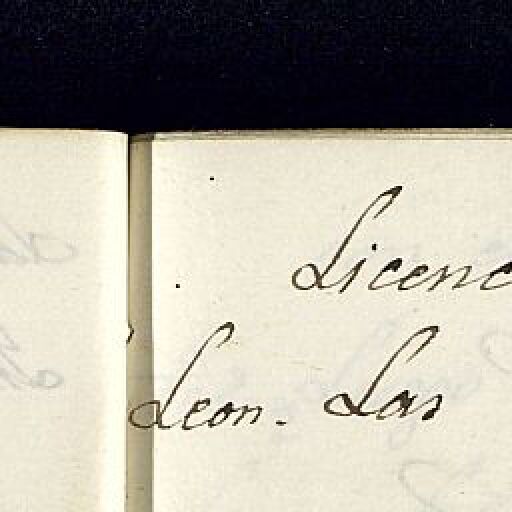 Licenc
Leon. Las